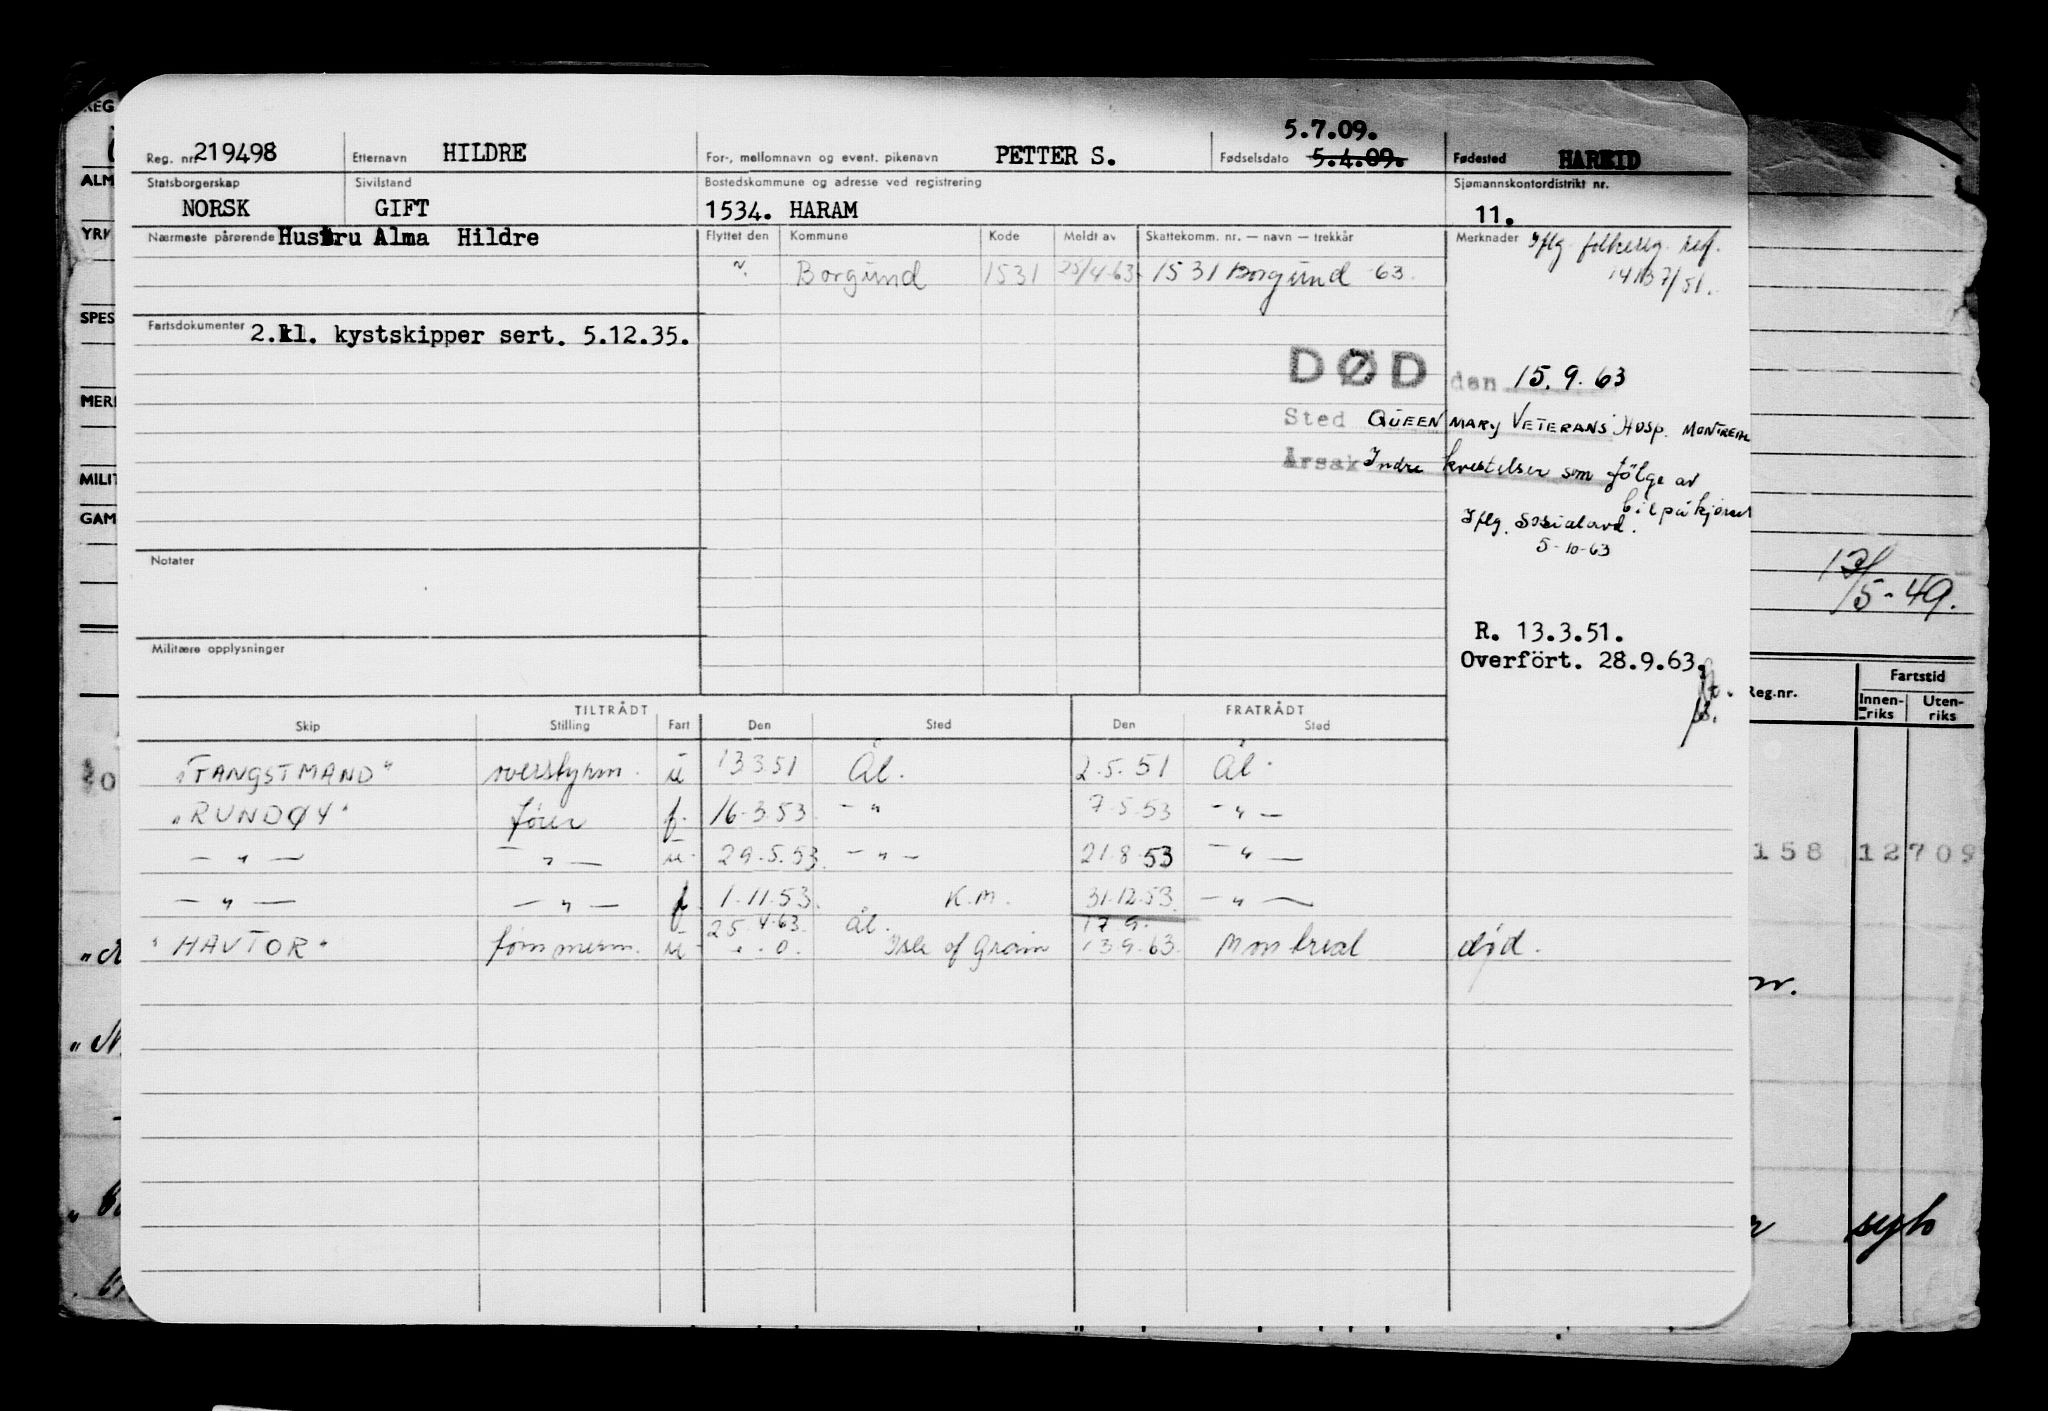 5.7.09.
Reg. nr. 219498 Etternavn HILDRE For-, mellomnavn og event. pikenavn PETTER S. Fødselsdato 5.4.09. Fødested HAREID
Statsborgerskap Sivilstand Bostedskommune og adresse ved registrering Sjømannskontordistrikt nr.
NORSK GIFT 1534. HARAM 11.
Nærmeste pårørende Hustru Alma Hildre Flyttet den Kommune Kode Meldt av Skattekomm. nr. — navn — trekkår Merknader Iflg. folkereg.
Borgund 1531 25/4-63 1531 Borgund 63.
Fartsdokumenter 2.kl. kystskipper sert. 5.12.35.
DØD den 15.9.63
Sted QUEEN MARY VETERANS' HOSP. MONTREAL
Årsak Indre kvestelser som følge av
bilpåkjørsel
Iflg. Sosialavd.
5-10-63
Notater
R. 13.3.51.
Militære opplysninger
Overfört. 28.9.63.
TILTRÅDT FRATRÅDT
Skip Stilling Fart Den Sted Den Sted
"FANGSTMAND" overstyrm. u 13 3 51 Ål. 2.5.51 Ål.
"RUNDØY" fører f. 16.3.53 — " 7.5.53 — " —
— " — — " — u. 29.5.53. — " — 21.8.53 — " —
— " — — " — f. 1.11.53. K.M. 31.12.53. — " —
25.4.63. Ål. 17.9.
"HAVTOR" tømmerm. u - . - 0. Isle of Grain 13 9.63. Montreal død.
REG
ALM
YRK
SPES
MERK
MILIT
GAM
13/5-49.
Reg.nr. Fartstid
Innen-riks Uten-riks
158 12709